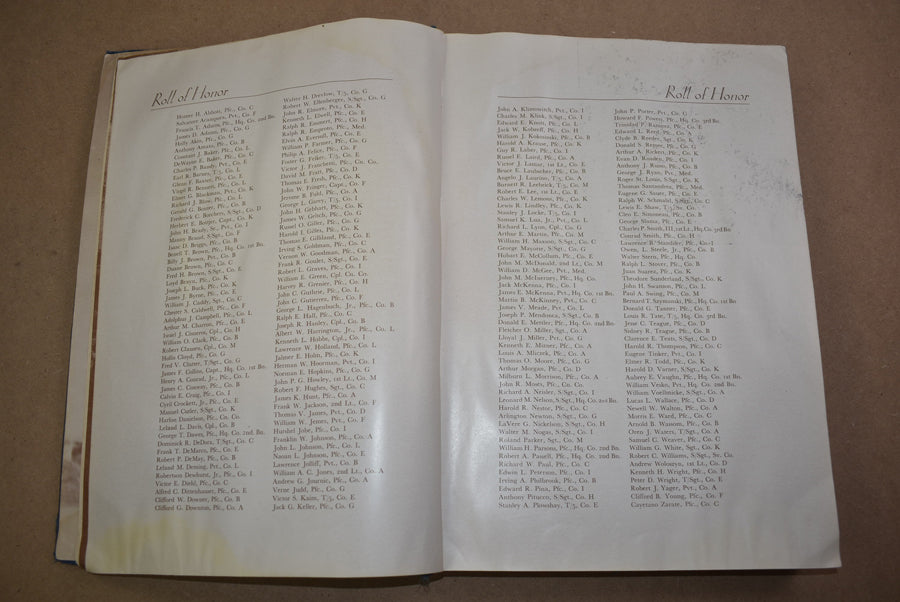 Roll of Honor
Homer H. Abbott, Pfc., Co. C
Salvatore Acampora, Pvt., Co. F
Francis T. Adams, Pfc., Hq. Co. 2nd Bn.
James H. Adams, Pfc., Co. G
Holly Akin, Pfc., Co. G
Anthony Amato, Pfc., Co. B
Constant J. Baker, Pfc., Co. L
DeWayne E. Baker, Pfc., Co. C
Charles P. Bandy, Pvt., Co. E
Earl R. Barnes, T/3, Co. L
Glenn F. Baxter, Pfc., Co. E
Virgil R. Bennett, Pfc., Co. I
Elmer G. Blackston, Pvt., Co. K
Richard J. Blow, Pfc., Co. L
Gerald G. Bontz, Pfc., Co. B
Frederick C. Borchers, S/Sgt., Co. D
Herbert E. Bottjer, Capt., Co. K
John H. Brady, Sr., Pvt., Co. I
Manny Brand, S/Sgt., Co. F
Isaac D. Briggs, Pfc., Co. B
Bezell T. Brown, Pfc., Hq. Co. 1st Bn.
Billy J. Brown, Pvt., Co. B
Duane Brown, Pfc., Co. G
Fred H. Brown, S/Sgt., Co. E
Loyd Bruce, Pfc., Co. K
Joseph L. Buck, Pfc., Co. K
James J. Byrne, Pfc., Co. E
William J. Caddy, Sgt., Co. C
Chester S. Caldwell, Pfc., Co. F
Adolphus J. Campbell, Pfc., Co. L
Arthur M. Charron, Pfc., Co. E
Israel J. Cisneros, Cpl., Co. H
William O. Clark, Pfc., Co. B
Robert Clausen, Cpl., Co. M
Hollis Cloyd, Pfc., Co. G
Fred V. Cluter, T/Sgt., Co. G
James F. Collins, Capt., Hq. Co. 1st Bn.
Henry A. Conrad, Jr., Pfc., Co. L
James C. Conway, Pfc., Co. B
Calvin E. Craig, Pfc., Co. I
Cyril Crockett, Jr., Pfc., Co. E
Manuel Cutler, S/Sgt., Co. K
Harlan Danielson, Pfc., Co. Co.
Leland L. Davis, Cpl., Co. B
George T. Dawes, Pfc., Hq. Co. 2nd Bn.
Dominick R. DeDura, T/Sgt., Co. C
Frank T. DeMarco, Pfc., Co. E
Robert P. DeMay, Pfc., Co. B
Leland M. Deming, Pvt., Co. L
Robertson Dewhurst, Jr., Pfc., Co. I
Victor E. Diehl, Pfc., Co. C
Alfred C. Dittenhauer, Pfc., Co. E
Clifford W. Downer, Pfc., Co. B
Clifford G. Downton, Pfc., Co. A
Walter H. Drevlow, T/5, Co. G
Robert W. Ellenberger, S/Sgt., Co. G
John R. Elmore, Pvt., Co. K
Kenneth L. Elwell, Pfc., Co. E
Ralph R. Emmert, Pfc., Co. H
Ralph R. Emproto, Pfc., Med.
Elvin A. Everoff, Pfc., Co. E
William P. Farmer, Pfc., Co. G
Philip A. Felice, Pfc., Co. F
Foster G. Felker, T/5, Co. E
Victor J. Franchetti, Pfc., Co. Co.
David M. Fratt, Pfc., Co. D
Thomas E. Fresh, Pfc., Co. K
John W. Fringer, Capt., Co. F
Jerome B. Fuhl, Pfc., Co. A
George L. Garey, T/5, Co. I
John H. Gebhart, Pfc., Co. K
James W. Gelsch, Pfc., Co. G
Russel O. Giller, Pfc., Co. G
Harold I. Giles, Pfc., Co. K
Thomas E. Gilliland, Pfc., Co. E
Irving S. Goldman, Pfc., Co. C
Vernon W. Goodman, Pfc., Co. A
Frank R. Goulet, S/Sgt., Co. E
Robert L. Graves, Pfc., Co. I
William E. Green, Cpl. Co. Co.
Harvey R. Grenier, Pfc., Co. H
John C. Guthrie, Pfc., Co. L
John C. Gutierrez, Pfc., Co. F
George L. Hagenbuch, Jr., Pfc., Co. B
Ralph E. Hall, Pfc., Co. C
Joseph R. Hanley, Cpl., Co. B
Albert W. Harrington, Jr., Pfc., Co. L
Kenneth L. Hobbs, Cpl., Co. I
Lawrence W. Holland, Pfc., Co. L
Jalmer E. Holm, Pfc., Co. K
Herman W. Hoorman, Pvt., Co. I
Norman E. Hopkins, Pfc., Co. G
John P. G. Howley, 1st Lt., Co. M
Robert F. Hughes, Sgt., Co. C
James K. Hunt, Pfc., Co. A
Frank W. Jackson, 2nd Lt., Co. F
Thomas V. James, Pvt., Co. D
William W. Jenes, Pvt., Co. F
Hurshel Jobe, Pfc., Co. I
Franklin W. Johnson, Pfc., Co. A
John L. Johnson, Pfc., Co. L
Nanan L. Johnson, Pfc., Co. E
Lawrence Jolliff, Pvt., Co. B
William A. C. Jones, 2nd Lt., Co. A
Andrew G. Journic, Pfc., Co. A
Verne Judd, Pfc., Co. G
Victor S. Kaim, T/5, Co. E
Jack G. Keller, Pfc., Co. G
Roll of Honor
John A. Klimowitch, Pvt., Co. I
Charles M. Klink, S/Sgt., Co. I
Edward E. Knott, Pfc., Co. L
Jack W. Kobneff, Pfc., Co. H
William J. Kokosinski, Pfc., Co. B
Harold A. Krause, Pfc., Co. K
Guy R. Laber, Pfc., Co. I
Russel E. Laird, Pfc., Co. A
Victor J. Lamar, 1st Lt., Co. E
Bruce E. Laubscher, Pfc., Co. B
Angelo J. Laurow, T/5, Co. A
Barnett R. Leebrick, T/5, Co. M
Robert E. Lee, 1st Lt., Co. E
Charles W. Lemons, Pfc., Co. K
Lewis R. Lindley, Pfc., Co. K
Stanley J. Locke, T/5, Co. I
Samuel K. Lua, Jr., Pvt., Co. L
Richard L. Lyon, Cpl., Co. G
Arthur E. Martin, Pfc., Co. M
William H. Maxson, S/Sgt., Co. C
George Mayotte, S/Sgt., Co. G
Hobart E. McCollum, Pfc., Co. E
John M. McDonald, 2nd Lt., Co. M
William D. McGee, Pvt., Med.
John M. McInerney, Pfc., Hq. Co.
Jack McKenna, Pfc., Co. I
James E. McKenna, Pvt., Hq. Co. 1st Bn.
Martin B. McKinney, Pvt., Co. C
James V. Meade, Pvt., Co. L
Joseph P. Mendonca, S/Sgt., Co. B
Donald E. Mettler, Pfc., Hq. Co. 2nd Bn.
Fletcher O. Miller, Sgt., Co. A
Lloyal J. Miller, Pvt., Co. G
Kenneth E. Mitner, Pfc., Co. A
Louis A. Mliczek, Pfc., Co. A
Thomas O. Moore, Pfc., Co. G
Arthur Morgan, Pfc., Co. D
Milburn L. Morrison, Pfc., Co. A
John R. Moses, Pfc., Co. Co.
Richard A. Neisler, S/Sgt., Co. I
Leonard M. Nelson, S/Sgt., Hq. Co. 2nd Bn.
Harold R. Nestor, Pfc., Co. C
Arlington Newton, S/Sgt., Co. G
LaVere G. Nickelson, S/Sgt., Co. H
Walter M. Nogas, S/Sgt., Co. I
Roland Parker, Sgt., Co. M
William H. Parsons, Pfc., Hq. Co. 2nd Bn.
Robert A. Pasell, Pfc., Hq. Co. 2nd Bn.
Richard W. Paul, Pfc., Co. C
Edwin L. Peterson, Pfc., Co. I
Irving A. Philbrook, Pfc., Co. B
Edward R. Pina, Pfc., Co. I
Anthony Pitucco, S/Sgt., Co. H
Stanley A. Plowshay, T/5, Co. E
John P. Porter, Pvt., Co. G
Howard F. Posery, Pfc., Hq. Co. 3rd Bn.
Trinidad F. Ramirez, Pfc., Co. E
Edward L. Reed, Pfc., Co. A
Clyde B. Reeder, Sgt., Co. K
Donald S. Reyner, Pfc., Co. G
Arthur A. Rickert, Pfc., Co. K
Evan D. Roades, Pfc., Co. I
Anthony J. Runo, Pfc., Co. B
George J. Ryan, Pvt., Med.
Roger St. Louis, S/Sgt., Co. K
Thomas Santandrea, Pfc., Med.
Eugene G. Saute, Pfc., Co. E
Ralph W. Schmahl, S/Sgt., Co. C
Lewis E. Shaw, T/5, Co. Co.
Cleo E. Simoneau, Pfc., Co. B
George Slama, Pfc., Co. E
Charles P. Smith, III, 1st Lt., Hq. Co. 3rd Bn.
Conrad Smith, Pfc., Co. H
Lawrence B. Standifer, Pfc., Co. I
Owen L. Steele, Jr., Pfc., Co. B
Walter Stern, Pfc., Hq. Co.
Ralph L. Stover, Pfc., Co. B
Juan Suarez, Pfc., Co. K
Theodore Sunderland, S/Sgt., Co. K
John H. Swanton, Pfc., Co. L
Paul A. Swing, Pfc., Co. M
Bernard T. Szymanski, Pfc., Hq. Co. 1st Bn.
Donald G. Tanner, Pfc., Co. E
Louis R. Tate, T/5, Hq. Co. 3rd Bn.
Jesse C. Teague, Pfc., Co. D
Sidney R. Teague, Pfc., Co. B
Clarence E. Teats, S/Sgt., Co. D
Harold R. Thompson, Pfc., Co. C
Eugene Tinker, Pvt., Co. I
Elmer R. Todd, Pfc., Co. K
Harold D. Varner, S/Sgt., Co. K
Aubrey E. Vaughn, Pfc., Hq. Co. 1st Bn.
William Vesko, Pvt., Hq. Co. 2nd Bn.
William Voelbnicke, S/Sgt., Co. A
Lucas L. Wallace, Pfc., Co. D
Newell W. Walton, Pfc., Co. A
Morris E. Ward, Pfc., Co. C
Arnold B. Wassom, Pfc., Co. B
Oren J. Waters, T/Sgt., Co. A
Samuel C. Weaver, Pfc., Co. C
William G. White, Sgt., Co. K
Robert C. Williams, S/Sgt., Sv. Co.
Andrew Wolosuyn, 1st Lt., Co. D
Kenneth H. Wright, Pfc., Co. H
Peter D. Wright, T/Sgt., Co. E
Robert J. Yager, Pvt., Co. A
Clifford B. Young, Pfc., Co. F
Cayetano Zarate, Pfc., Co. C